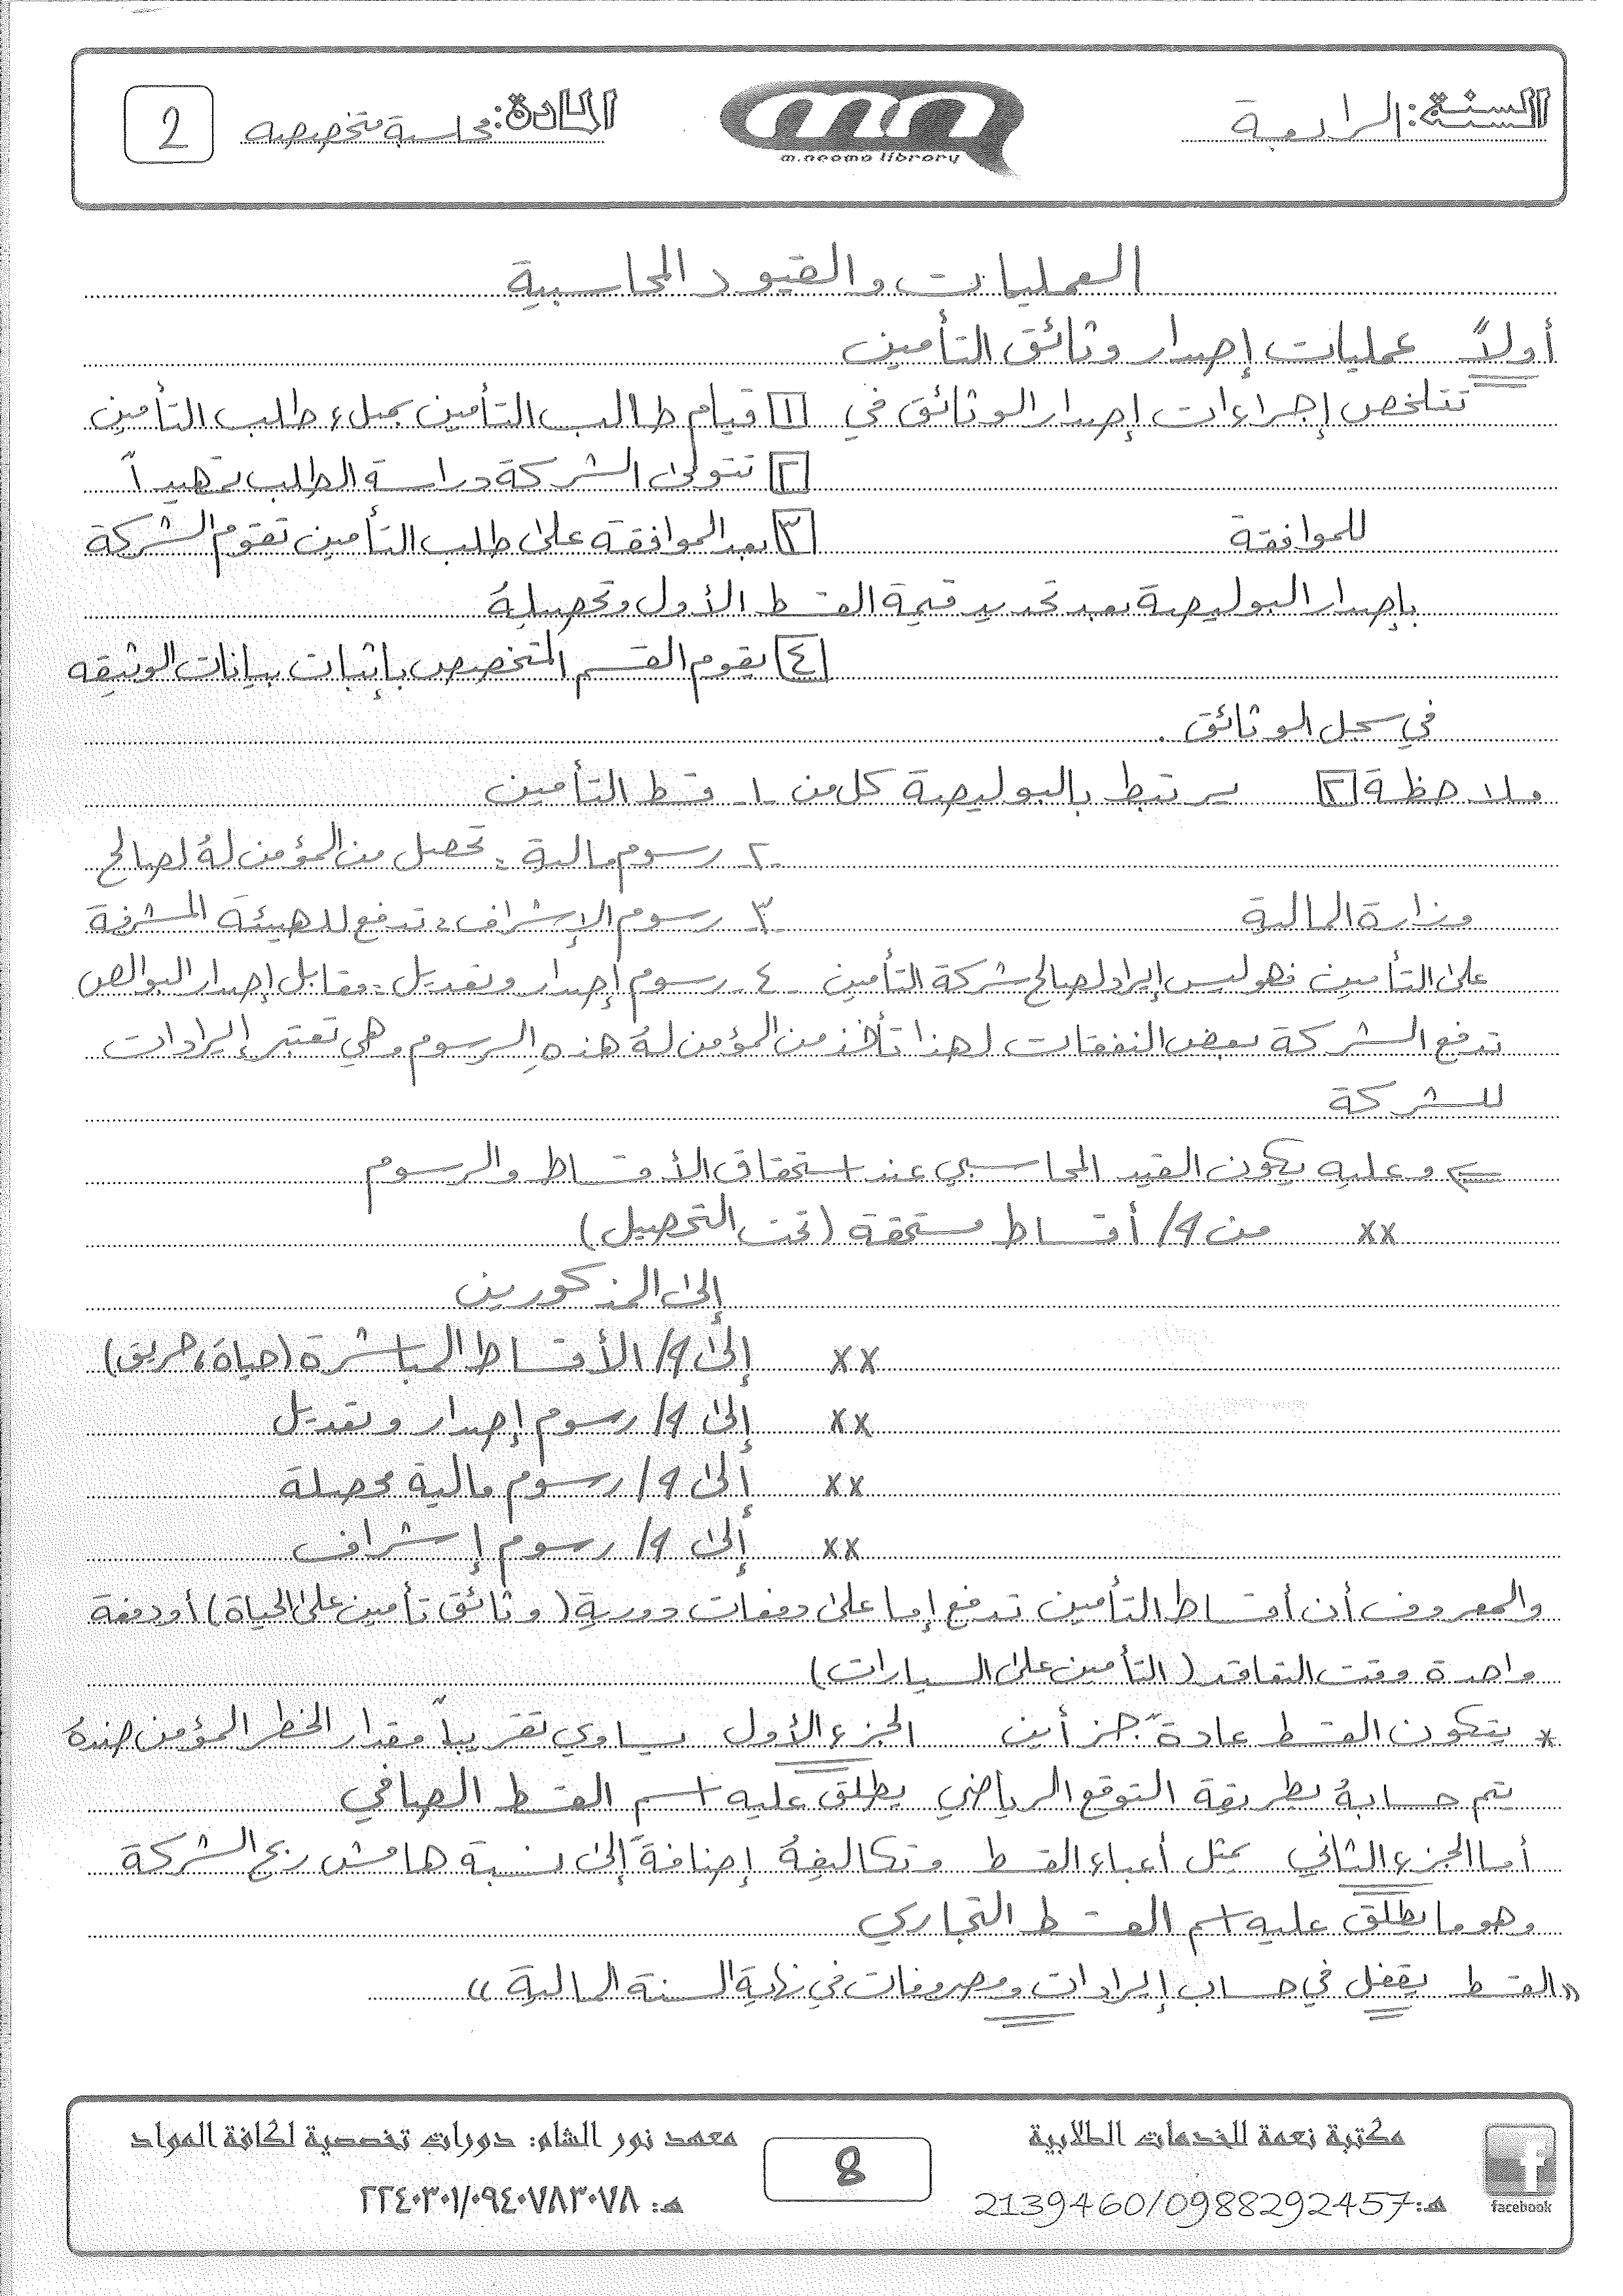 السنة: الرابعة
m.neama library
المادة: محاسبة متخصصة
2
العمليات والقيود المحاسبية
أولاً عمليات إصدار وثائق التأمين
تتلخص إجراءات إصدار الوثائق في [١] قيام طالب التأمين بملء طلب التأمين
[٢] تتولى الشركة دراسة الطلب تمهيداً
للموافقة [٣] بعد الموافقة على طلب التأمين تقوم الشركة
بإصدار البوليصة بعد تحديد قيمة القسط الأول وتحصيلهُ
[٤] يقوم القسم المتخصص بإثبات بيانات الوثيقه
في سجل الوثائق .
ملاحظة [٢] يرتبط بالبوليصة كل من ١- قسط التأمين
٢- رسوم مالية : تحصل من المؤمن لهُ لصالح
وزارة المالية ٣- رسوم الإشراف : تدفع للهيئة المشرفة
على التأمين فهو ليس إيراد لصالح شركة التأمين ٤- رسوم إصدار وتعديل : مقابل إصدار البوالص
تدفع الشركة بعض النفقات لهذا تأخذ من المؤمن لهُ هذهِ الرسوم وهي تعتبر إيرادات
للشركة
⇐ وعليه يكون القيد المحاسبي عند استحقاق الأقساط والرسوم
xx من ح/ أقساط مستحقة (تحت التحصيل)
إلى المذكورين
xx إلى ح/ الأقساط المباشرة (حياة، حريق)
xx إلى ح/ رسوم إصدار وتعديل
xx إلى ح/ رسوم مالية محصلة
xx إلى ح/ رسوم إشراف
والمعروف أن أقساط التأمين تدفع إما على دفعات دورية (وثائق تأمين على الحياة) أو دفعة
واحدة وقت التعاقد (التأمين على السيارات)
* يتكون القسط عادة ً جزأين الجزء الأول يساوي تقريباً مقدار الخطر المؤمن ضندهُ
يتم حسابهُ بطريقة التوقع الرياضي يطلق عليه اسم القسط الصافي
أما الجزء الثاني يمثل أعباء القسط وتكاليفهُ إضافةً إلى نسبة هامش ربح الشركة
وهو ما يطلق عليه اسم القسط التجاري
«القسط يقفل في حساب إيرادات ومصروفات في نهاية السنة المالية »
facebook
مكتبة نعمة للخدمات الطلابية
هـ: 2139460/0988292457
8
معهد نور الشام: دورات تخصصية لكافة المواد
هـ: ٢٢٤٠٣٠١/٠٩٤٠٧٨٣٠٧٨